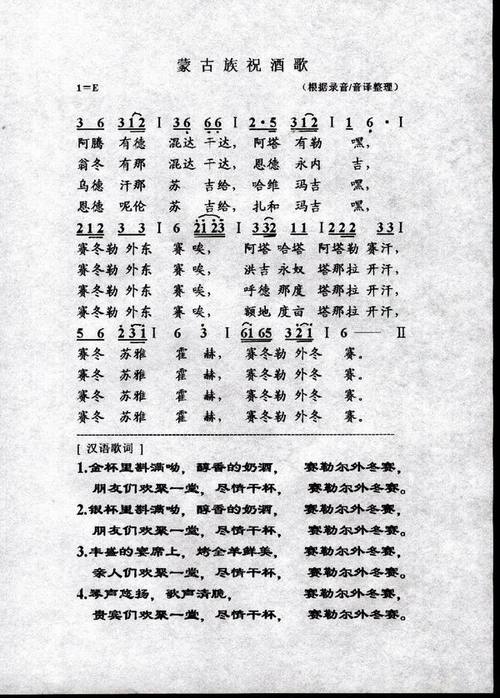 蒙古族祝酒歌
1=E （根据录音/音译整理）
3 6 312 | 36 66 | 2·5 312 | 1 6· |
阿腾 有德 混达 干达， 阿塔 有勒 嘿，
翁冬 有那 混达 干达， 恩德 永内 吉，
乌德 汗那 苏 吉给， 哈维 玛吉 嘿，
恩德 呢伦 苏 吉给， 扎和 玛吉 嘿，
212 3 3 | 6 2123 | 332 11 212 222 33 |
赛冬勒 外东 赛 唉， 阿塔 哈塔 阿塔勒 赛汗，
赛冬勒 外东 赛 唉， 洪吉 永奴 塔那拉 开汗，
赛冬勒 外东 赛 唉， 呼德 那度 塔那拉 开汗，
赛冬勒 外东 赛 唉， 额地 度亩 塔那拉 开汗，
5 6 2321 | 6 3 | 6165 321 | 6 —— ||
赛冬 苏雅 霍 赫， 赛冬勒 外冬 赛。
赛冬 苏雅 霍 赫， 赛冬勒 外冬 赛。
赛冬 苏雅 霍 赫， 赛冬勒 外冬 赛。
赛冬 苏雅 霍 赫， 赛冬勒 外冬 赛。
[ 汉语歌词 ]
1.金杯里斟满呦， 醇香的奶酒， 赛勒尔外冬赛，
朋友们欢聚一堂， 尽情干杯， 赛勒尔外冬赛。
2.银杯里斟满呦， 醇香的奶酒， 赛勒尔外冬赛，
朋友们欢聚一堂， 尽情干杯， 赛勒尔外冬赛。
3.丰盛的宴席上， 烤全羊鲜美， 赛勒尔外冬赛，
亲人们欢聚一堂， 尽情干杯， 赛勒尔外冬赛。
4.琴声悠扬， 歌声清脆， 赛勒尔外冬赛，
贵宾们欢聚一堂， 尽情干杯， 赛勒尔外冬赛。